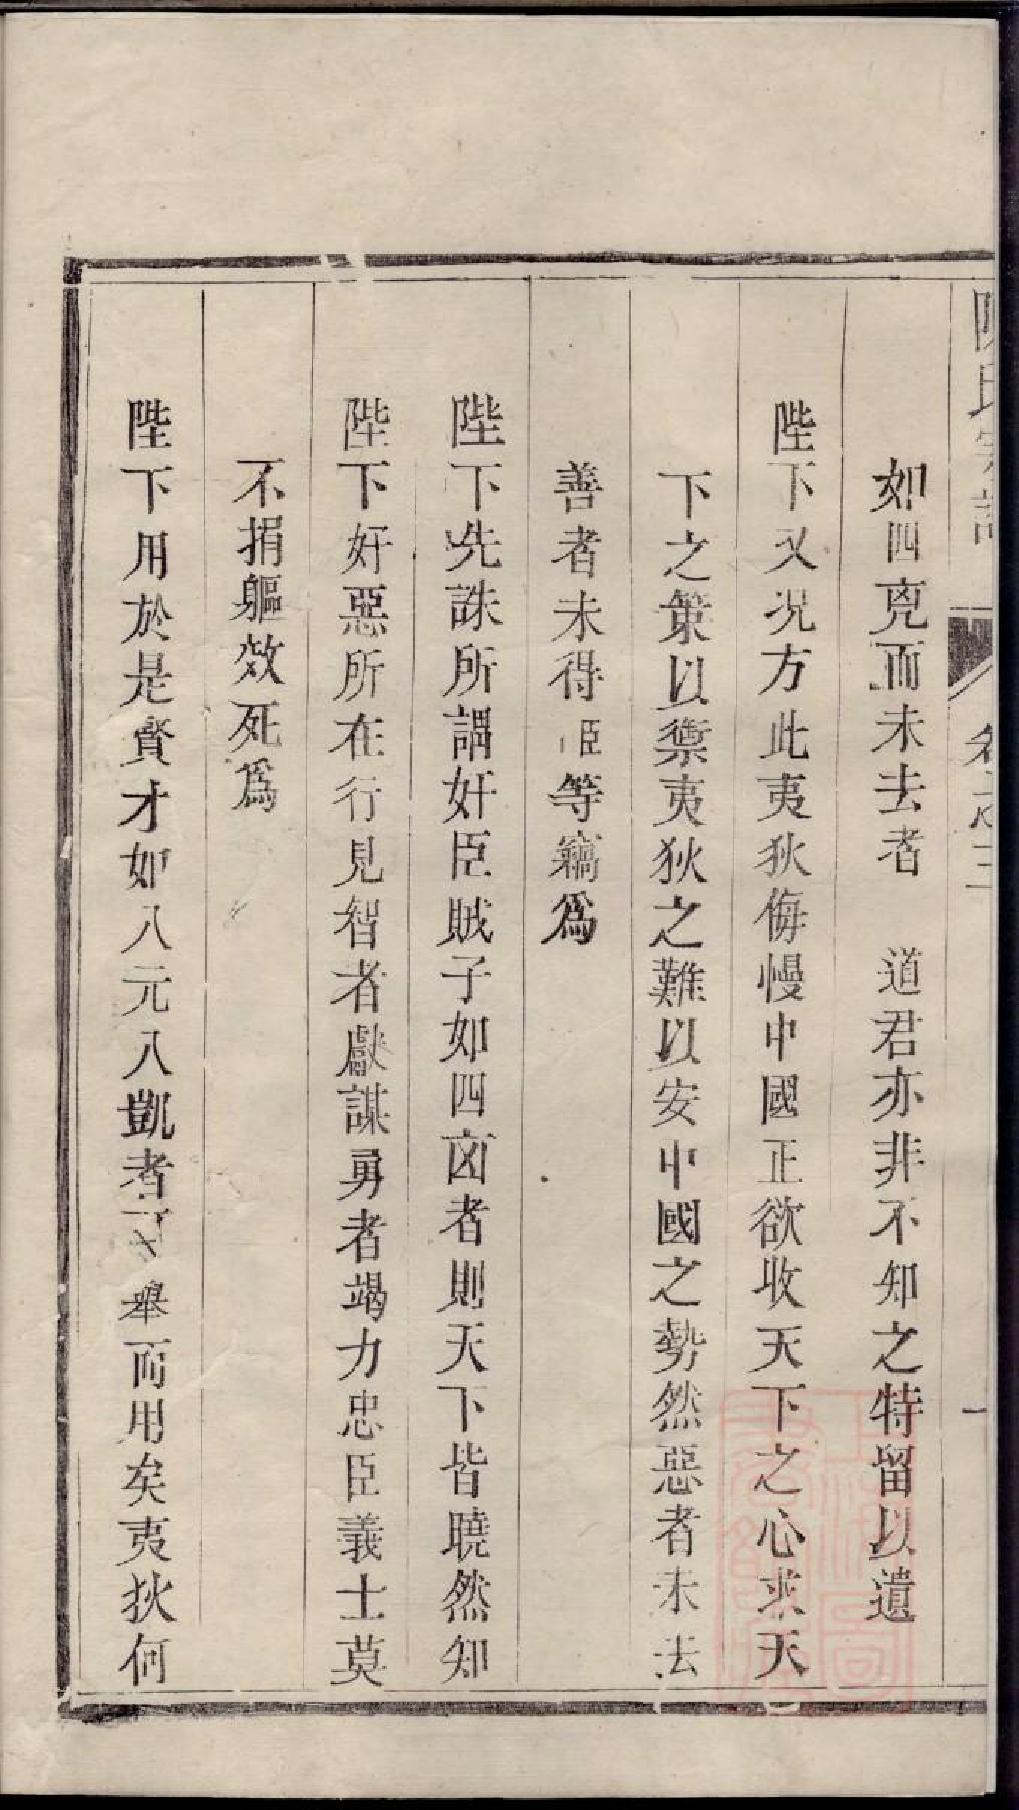 陳氏宗譜 卷之三 一
如四兇而未去者 道君亦非不知之特留以遺
陛下又况方此夷狄侮慢中國正欲收天下之心求天
下之策以禦夷狄之難以安中國之勢然惡者未去
善者未得臣等竊爲
陛下先誅所謂奸臣賊子如四囟者則天下皆曉然知
陛下好惡所在行見智者獻謀勇者竭力忠臣義士莫
不捐軀效死爲
陛下用於是賢才如八元八凱者舉而用矣夷狄何